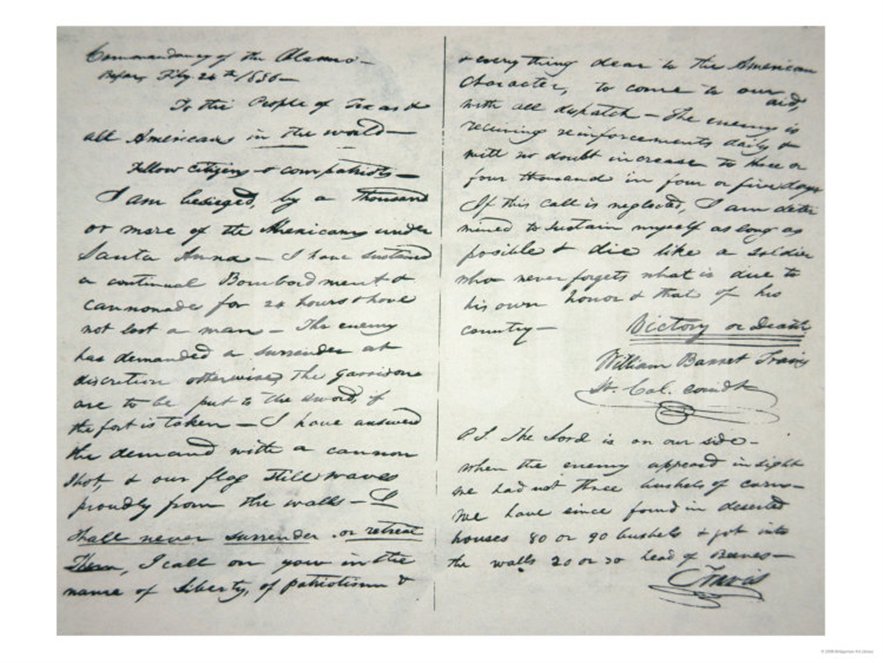 Commandancy of the Alamo—
Bejar, Feby. 24th 1836—
To the People of Texas &
all Americans in the world—
Fellow citizens & compatriots—
I am besieged, by a thousand
or more of the Mexicans under
Santa Anna— I have sustained
a continual Bombardment &
cannonade for 24 hours & have
not lost a man— The enemy
has demanded a surrender at
discretion otherwise, the garrison
are to be put to the sword, if
the fort is taken— I have answered
the demand with a cannon
shot, & our flag still waves
proudly from the walls— I
shall never surrender or retreat
Then, I call on you in the
name of Liberty, of patriotism &
& every thing dear to the American
character, to come to our aid,
with all dispatch— The enemy is
receiving reinforcements daily &
will no doubt increase to three or
four thousand in four or five days
If this call is neglected, I am deter
mined to sustain myself as long as
possible & die like a soldier
who never forgets what is due to
his own honor & that of his
country— Victory or Death
William Barret Travis
Lt. Col. comdt
P.S. The Lord is on our side—
when the enemy appeared in sight
we had not three bushels of corn—
we have since found in deserted
houses 80 or 90 bushels & got into
the walls 20 or 30 head of Beeves—
Travis